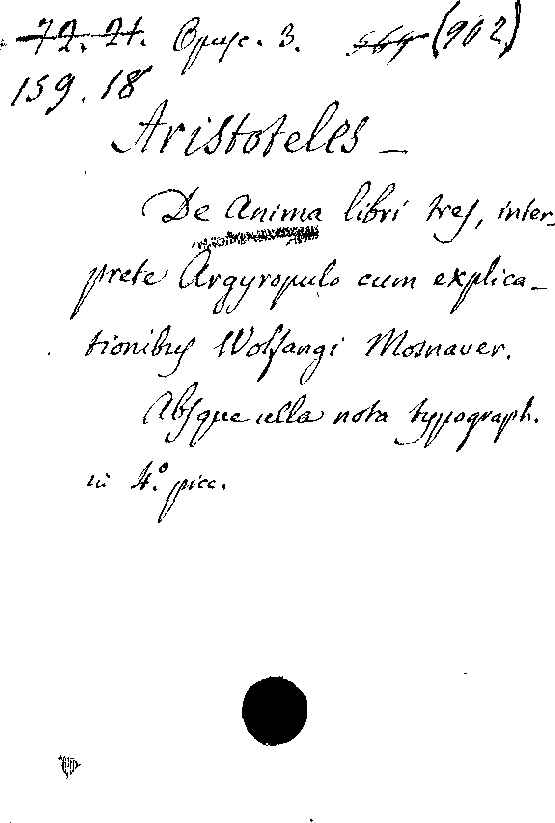 72. 21. Opusc. 3. 564 (902)
159.18
Aristoteles _
De Anima libri tres, inter_
prete Argyropulo cum explica_
tionibus Wolfangi Mosnauer.
Absque ulla nota typograph.
in 4.° picc.